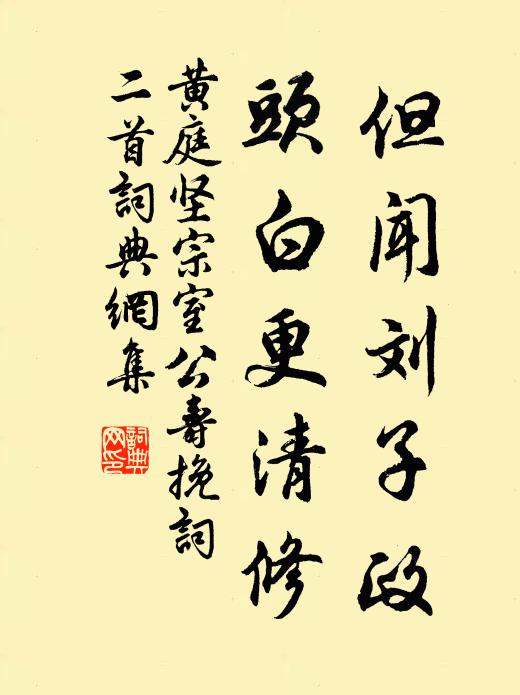 但闻刘子政
頭白更清修
黄庭坚宗室公壽挽詞
二首詞典網集
詞典
网印